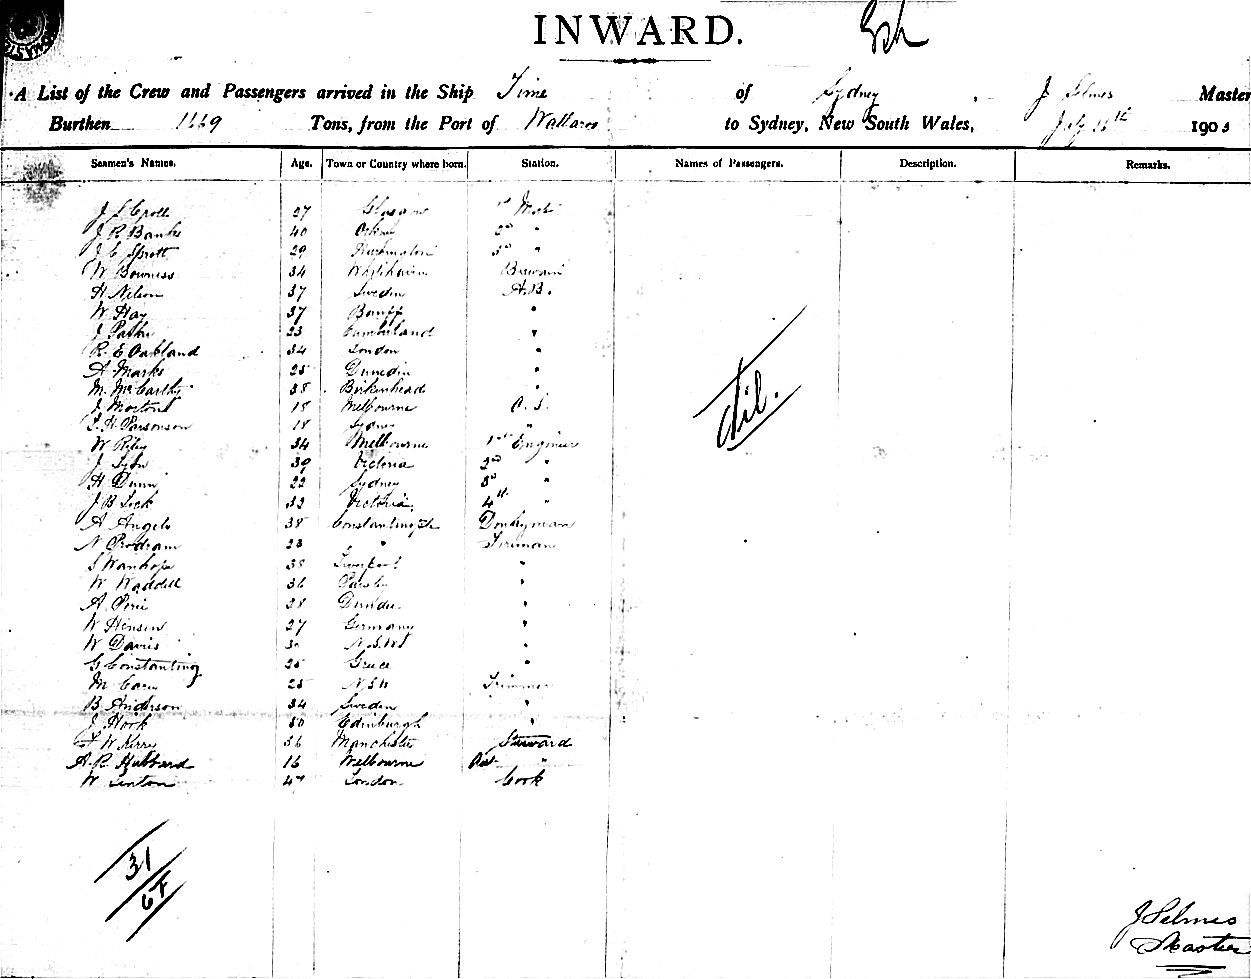 INWARD.
A List of the Crew and Passengers arrived in the Ship Time of Sydney, J Selmes Master
Burthen 1669 Tons, from the Port of Wallaroo to Sydney, New South Wales, July 16th 190
Seamen's Names. Age. Town or Country where born. Station. Names of Passengers. Description. Remarks.
27 Glasgow 1st Mate
J R Banks 40 Orkney 2nd "
J C Sprott 29 3rd "
W Bowness 34 Whitehaven
H Nelson 37 Sweden A.B.
W Hay 37 Banff "
J 23 Cumberland "
R. E Oakland 34 London "
A Marks 25 Dunedin "
M. McCarthy 38 Birkenhead "
J Morton 18 Melbourne O. S.
Parsonson 18 Sydney "
W Riley 34 Melbourne 1st Engineer
J 39 Victoria 2nd "
H Dunn 22 Sydney 3rd "
J B 32 Victoria 4th "
A Angelo 38 Constantinople Donkeyman
N 23 " Fireman
38 Liverpool "
W Waddell 36 Paisley "
A. Pirie 28 Dundee "
W Hensen 27 Germany "
W Davis N.S.W. "
G Constanting 25 Greece "
M Carey 25 N.S.W Trimmer
B. Anderson 34 Sweden "
J Hook 30 Edinburgh "
W 36 Manchester Steward
A. R. Hubbard 16 Melbourne Ast "
W Linton 47 London Cook
Nil.
31
J Selmes
Master